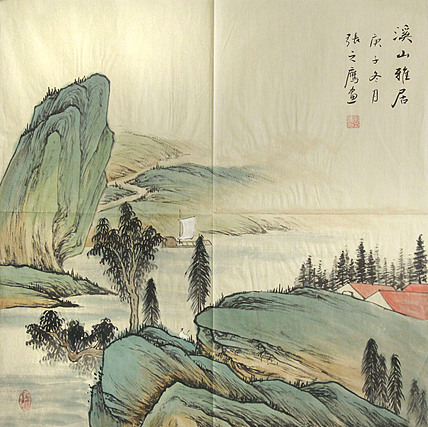 溪山雅居
庚子冬月
张之鹰画